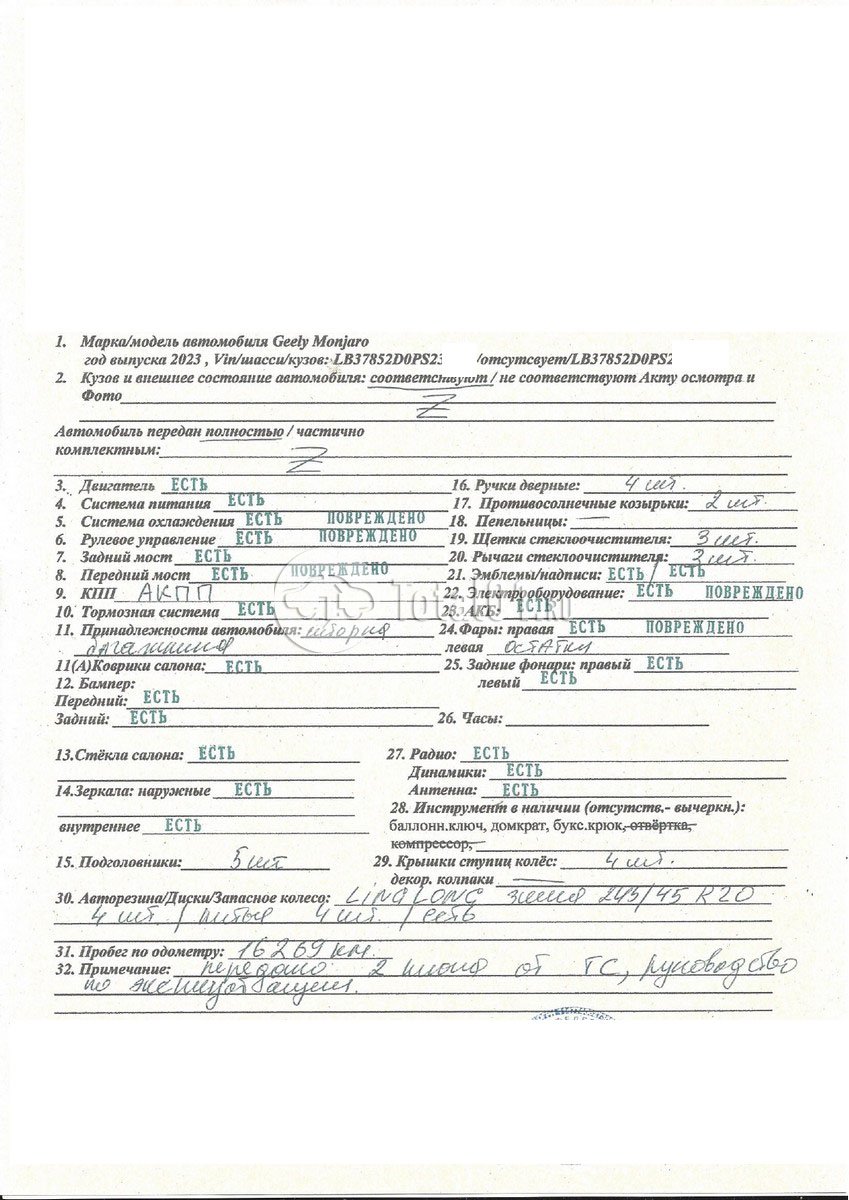 1. Марка/модель автомобиля Geely Monjaro
год выпуска 2023 , Vin/шасси/кузов: LB37852D0PS23 /отсутсвует/LB37852D0PS2
2. Кузов и внешнее состояние автомобиля: соответствуют / не соответствуют Акту осмотра и
Фото
Z
Автомобиль передан полностью / частично
комплектным:
Z
3. Двигатель ЕСТЬ
4. Система питания ЕСТЬ
5. Система охлаждения ЕСТЬ ПОВРЕЖДЕНО
6. Рулевое управление ЕСТЬ ПОВРЕЖДЕНО
7. Задний мост ЕСТЬ
8. Передний мост ЕСТЬ ПОВРЕЖДЕНО
9. КПП АКПП
10. Тормозная система ЕСТЬ
11. Принадлежности автомобиля: шторка
багажника
11(А)Коврики салона: ЕСТЬ
12. Бампер:
Передний: ЕСТЬ
Задний: ЕСТЬ
16. Ручки дверные: 4 шт.
17. Противосолнечные козырьки: 2 шт.
18. Пепельницы: —
19. Щетки стеклоочистителя: 3 шт.
20. Рычаги стеклоочистителя: 3 шт.
21. Эмблемы/надписи: ЕСТЬ / ЕСТЬ
22. Электрооборудование: ЕСТЬ ПОВРЕЖДЕНО
23. АКБ: ЕСТЬ
24.Фары: правая ЕСТЬ ПОВРЕЖДЕНО
левая остатки
25. Задние фонари: правый ЕСТЬ
левый ЕСТЬ
26. Часы:
13.Стёкла салона: ЕСТЬ
14.Зеркала: наружные ЕСТЬ
внутреннее ЕСТЬ
15. Подголовники: 5 шт
27. Радио: ЕСТЬ
Динамики: ЕСТЬ
Антенна: ЕСТЬ
28. Инструмент в наличии (отсутств.- вычеркн.):
баллонн.ключ, домкрат, букс.крюк, отвёртка,
компрессор,
29. Крышки ступиц колёс: 4 шт.
декор. колпаки —
30. Авторезина/Диски/Запасное колесо: LINGLONG зима 245/45 R20
4 шт / литые 4 шт. / есть
31. Пробег по одометру: 16269 км.
32. Примечание: передано 2 ключа от ТС, руководство
по эксплуатации.
Total01.ru